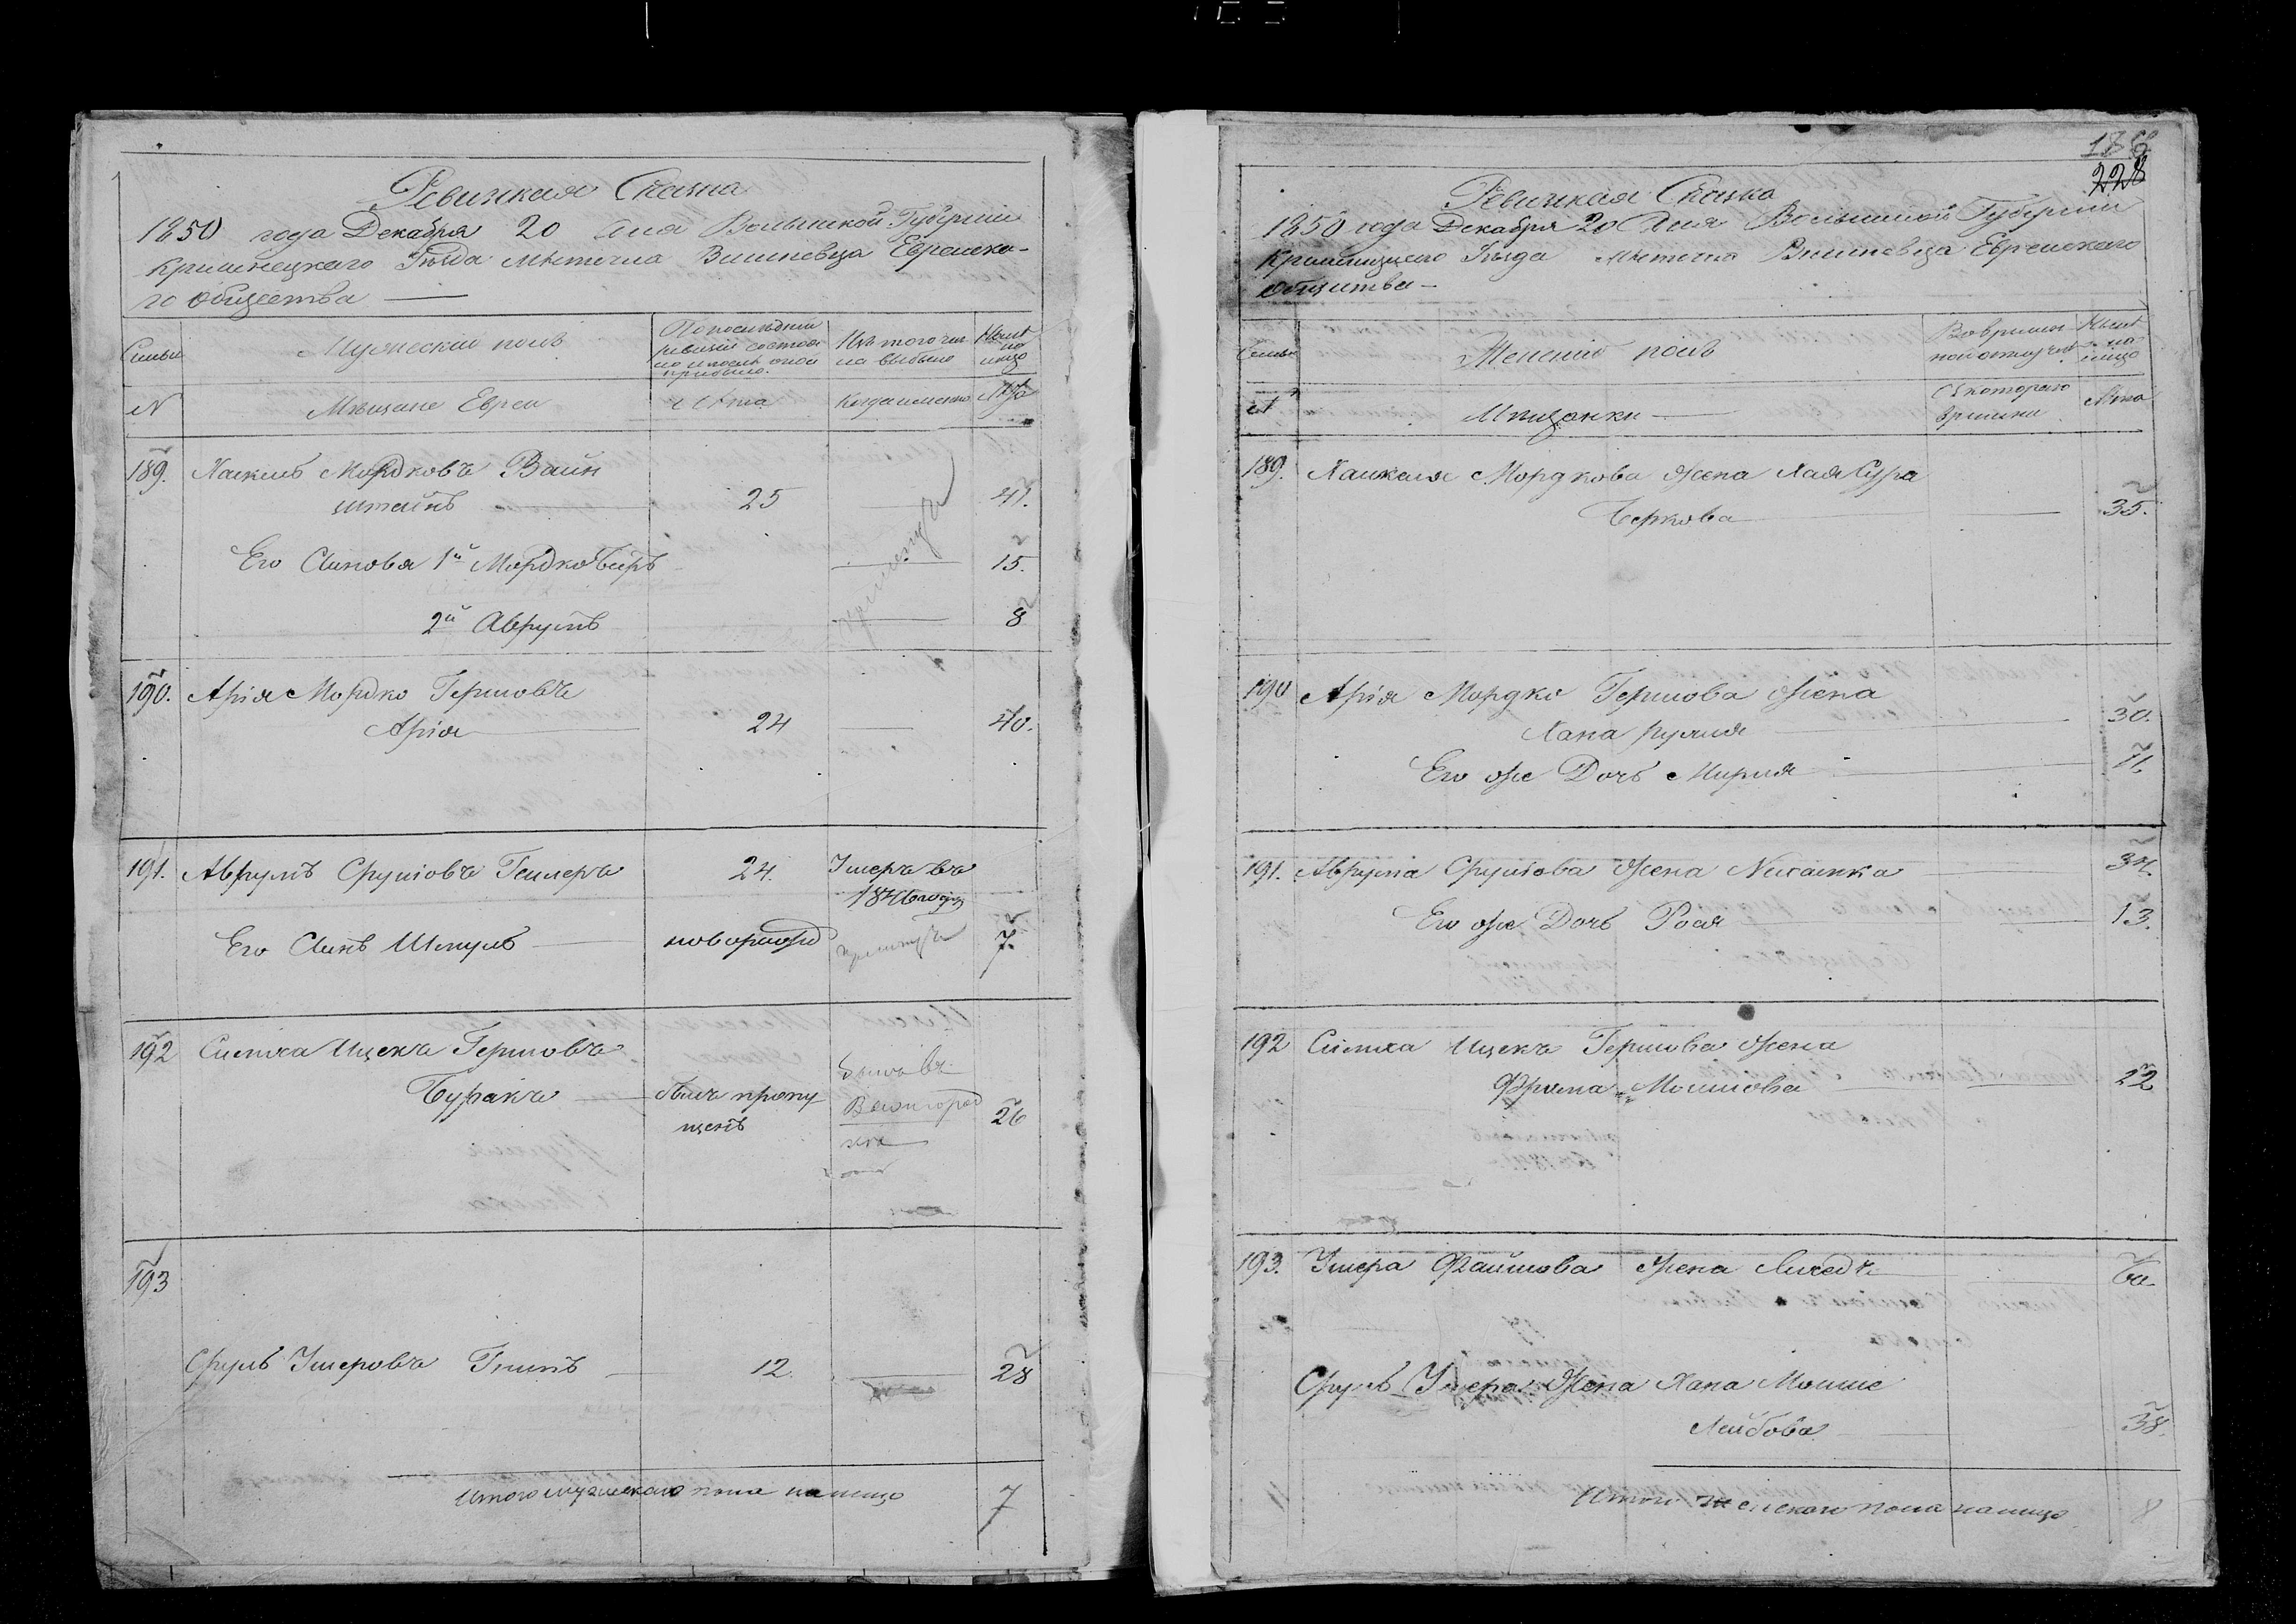 Ревижская Сказка
1850 года Декабря 20 Дня Волынской Губернии
Кременецкаго Уѣзда мѣстечка Вишневца Еврейска-
го общества —
Семьи
Мужеский полъ
По последней
ревизiи состоя
ло и послѣ оной
прибыло.
Изъ того чис
ла выбыло
Нынѣ
на
лицо
№
Мѣщане Евреи
Лѣта
Когда именно
Лѣта
189. Хаскель Мордковъ Вайн
штейнъ 25 — 41.
Его Сыновья 1й Мордко Беръ — 15.
2й Аврумъ — 8
190. Арiя Мордко Гершовъ
Арiя 24 — 40.
191. Аврумъ Сруліовъ 24. Умеръ въ
1846 году
Его Сынъ Шмуль — новорожд 7.
192 Симха Ицекъ Гершовъ
Буракъ — былъ пропу
щенъ 26
193
Сруль Умеровъ 12. — 28
Итого мужескаго пола на лицо 7
186
228
Ревижская Сказка
1850 года Декабря 20 Дня Волынской Губернии
Кременецкаго Уѣзда мѣстечка Вишневца Еврейскаго
общества —
Семьи
Женский полъ
Во времен
ной отлучкѣ
Нынѣ
на
лицо
№
Мѣщанки —
Съ котораго
времени
Лѣта
189. Хаскеля Мордкова жена Хая Сура
Беркова — 35.
190 Арiя Мордко Гершова жена
Хана Рухля 30.
Его же Дочь Мирля 11.
191. Аврума Сруліова жена 34.
Его же Дочь Рося 13.
192 Симха Ицекъ Гершова жена
Фрима Мошкова 22
193. Умера жена
Сруль Умера жена Хана Мошке
Лейбова 38
Итого женскаго пола на лицо 8